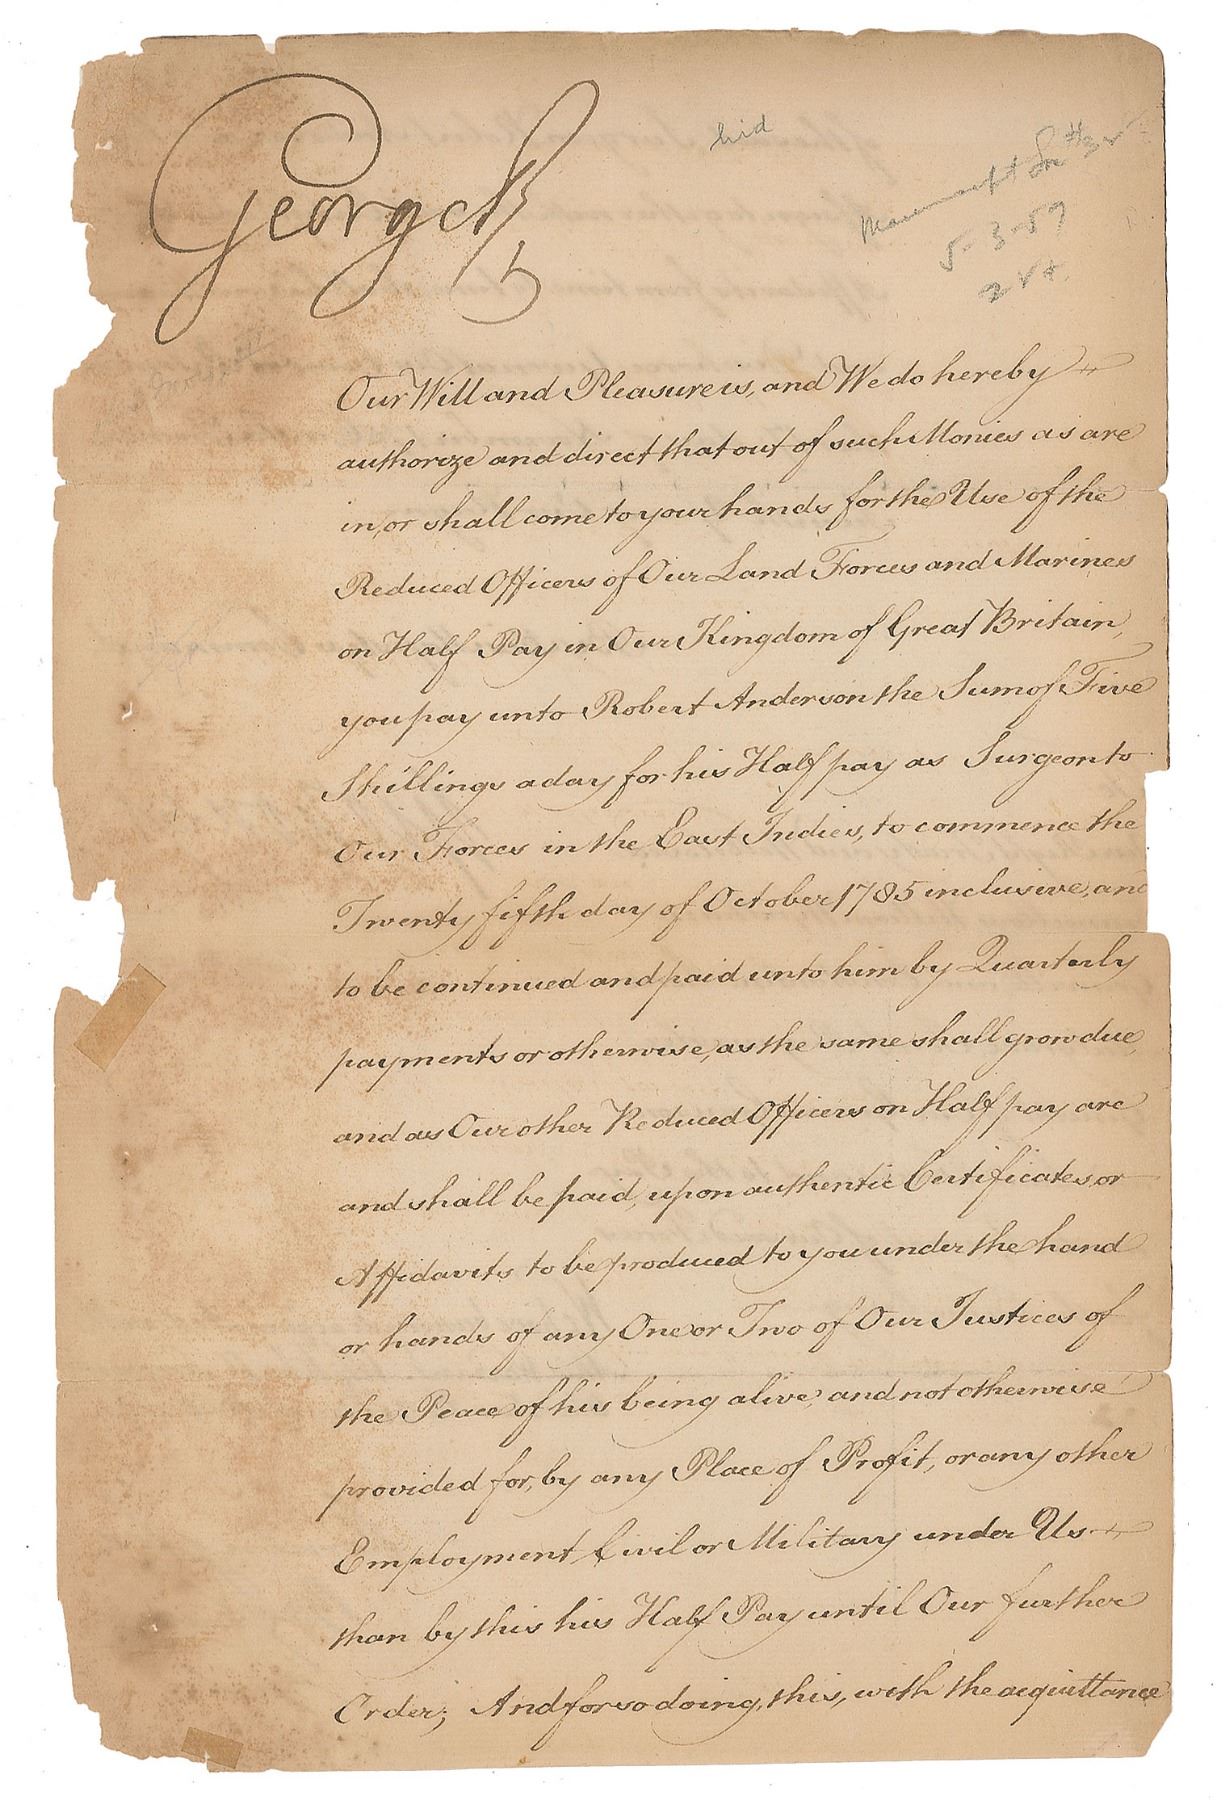 George R
hid
Manuscript
5-3-59
Our Will and Pleasure is, and We do hereby
authorize and direct that out of such Monies as are
in, or shall come to your hands for the Use of the
Reduced Officers of Our Land Forces and Marines
on Half Pay in Our Kingdom of Great Britain,
you pay unto Robert Anderson the Sum of Five
Shillings a day for his Half pay as Surgeon to
Our Forces in the East Indies, to commence the
Twenty fifth day of October 1785 inclusive, and
to be continued and paid unto him by Quarterly
payments or otherwise, as the same shall grow due,
and as Our other Reduced Officers on Half pay are
and shall be paid, upon authentic Certificates or
Affidavits to be produced to you under the hand
or hands of any One or Two of Our Justices of
the Peace of his being alive, and not otherwise
provided for, by any Place of Profit, or any other
Employment Civil or Military under Us
than by this his Half Pay until Our further
Order; And for so doing, this, with the acquittance